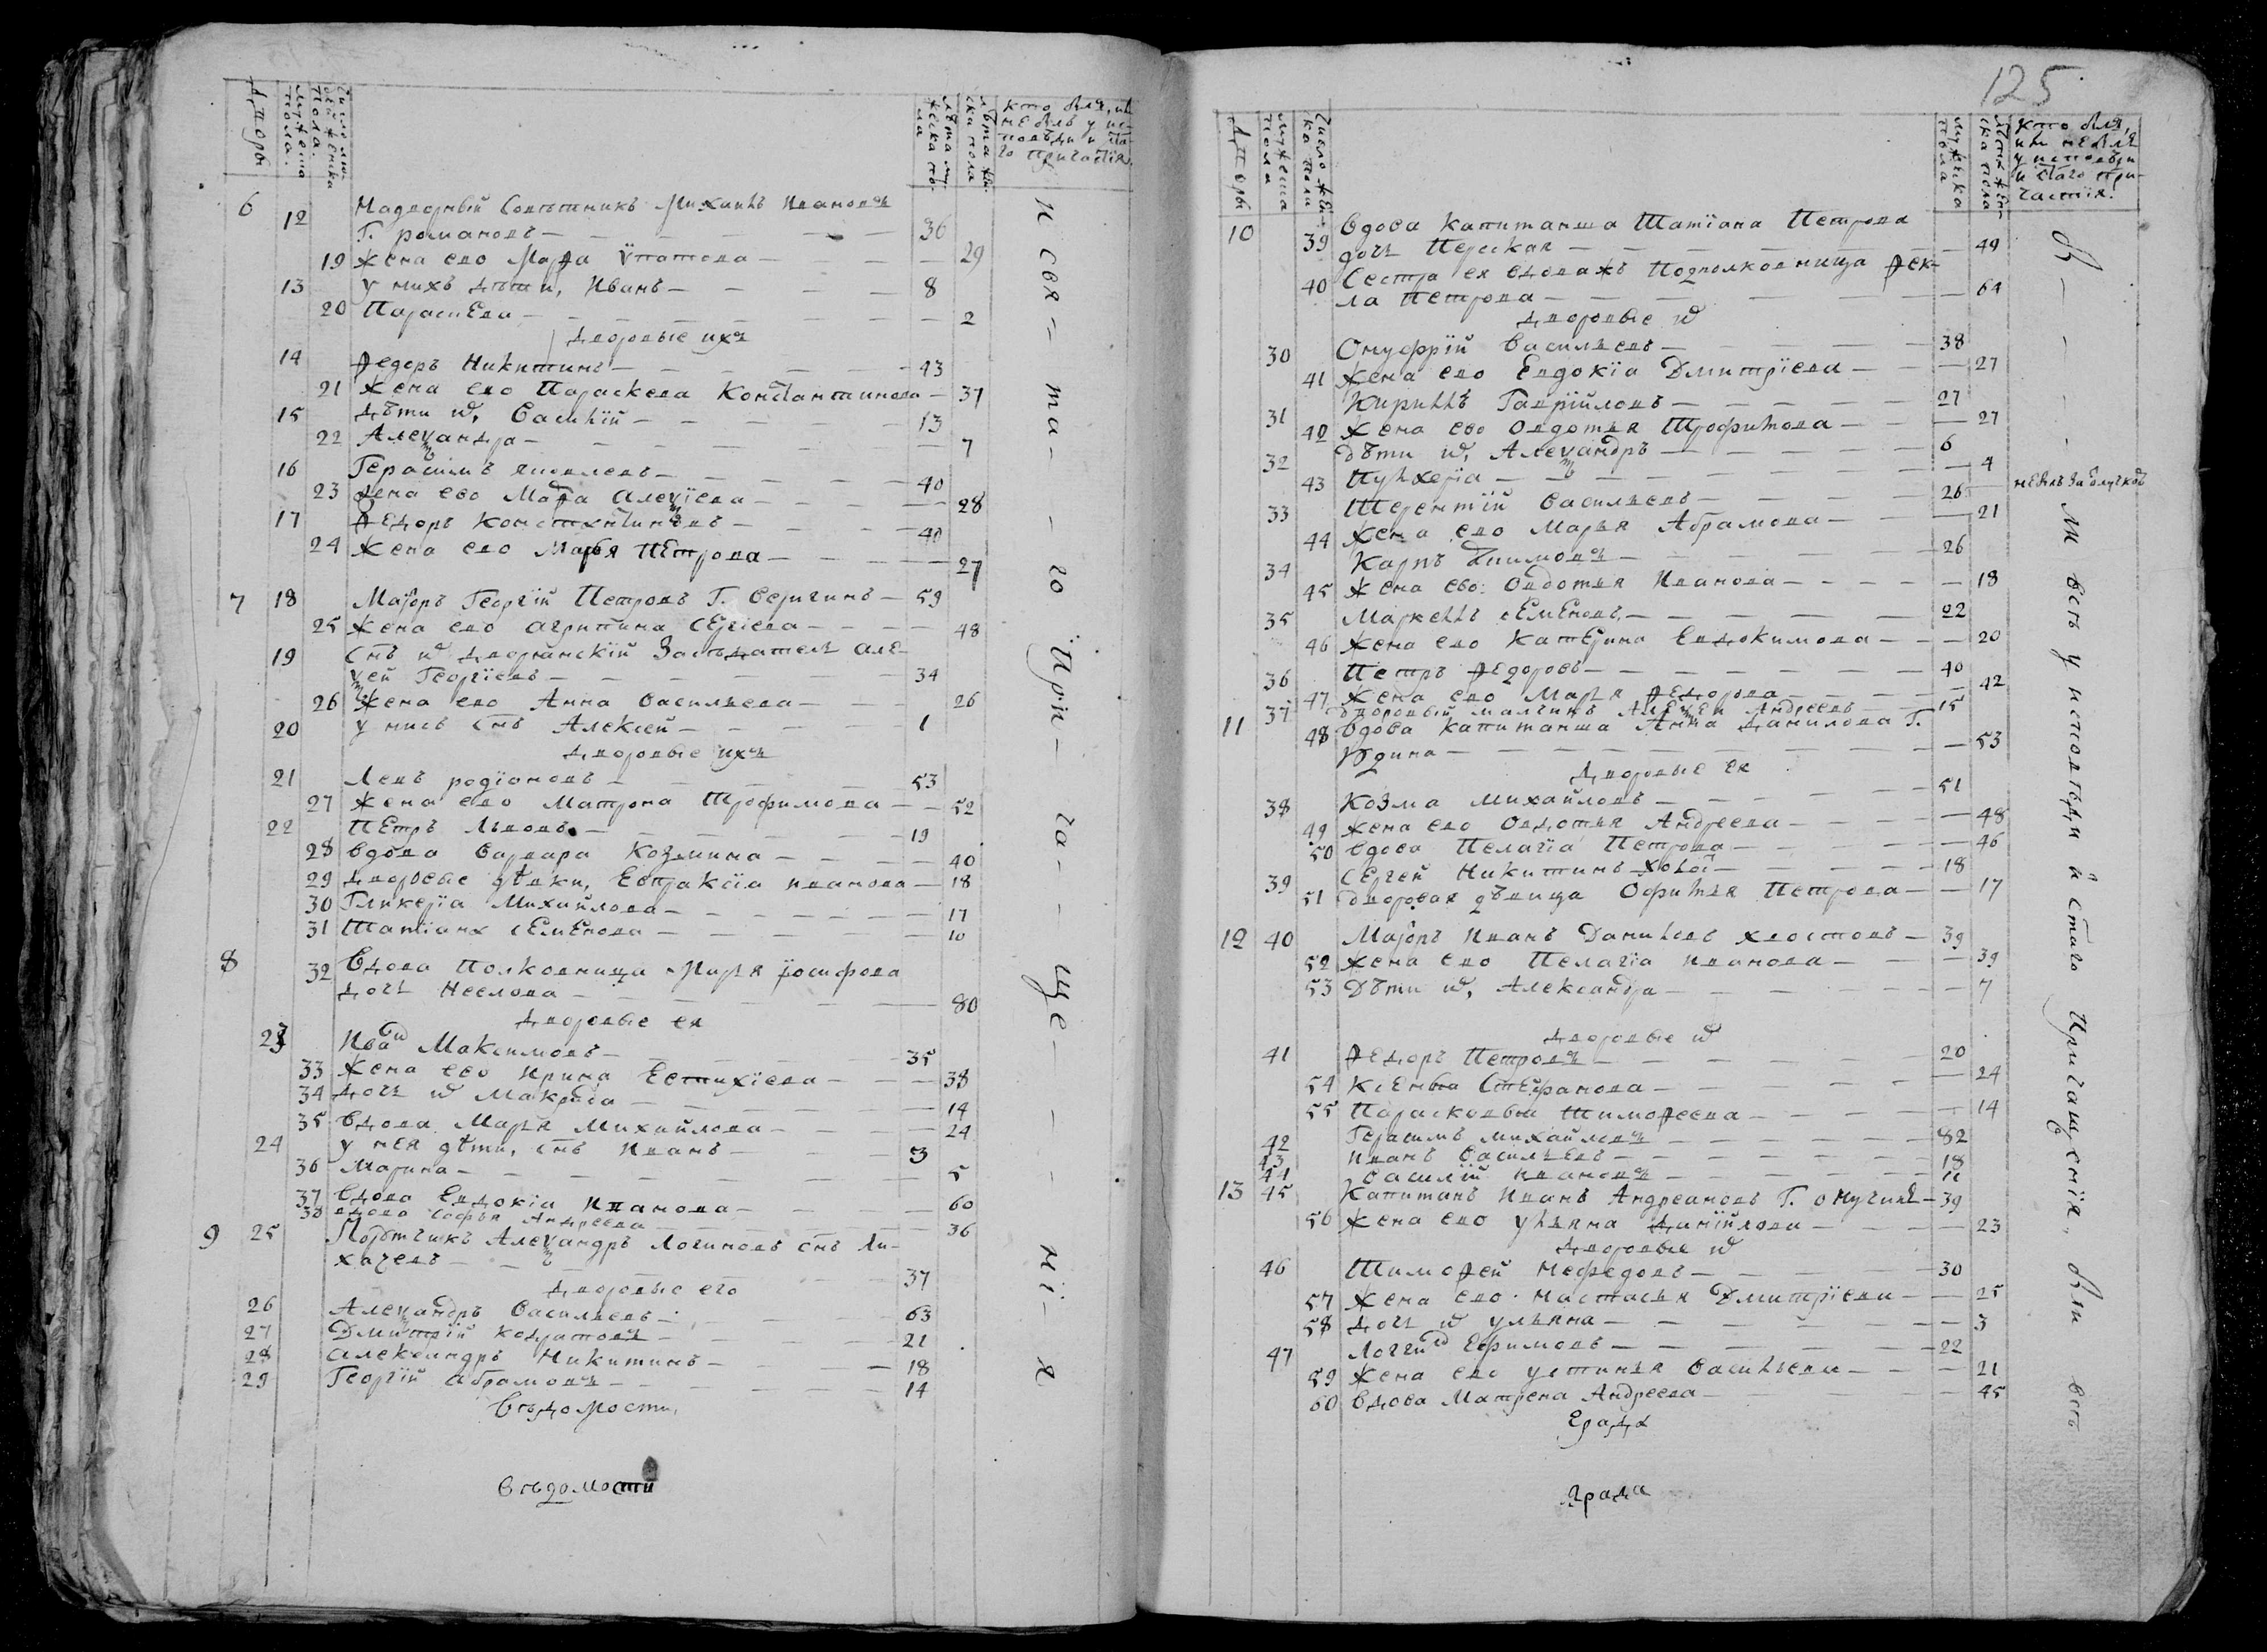 Дворы
мужеска пола.
Число людей женска пола.
лѣта мужеска пола
лѣта женска пола
кто былъ, или не былъ у исповѣди и стаго причастія.
6 12 Надворный Совѣтникъ Михаилъ Ивановъ
Г. романовъ — 36
19 Жена ево Марѳа Ѵпатова — 29
13 у нихъ дѣти, Иванъ — 8
20 Парасковья — 2
Дворовые ихъ
14 Ѳедоръ Никитинъ — 43
21 Жена ево Параскева Константинова — 37
15 дѣти их, Василій — 13
22 Алеѯандра — 7
16 Герасимъ яковлевъ — 40
23 жена ево Марѳа Алеѯіева — 28
17 Ѳедоръ Константиновъ — 40
24 Жена ево Марья Петрова — 27
7 18 Маіоръ Георгій Петровъ Г. Веригинъ — 59
25 Жена ево агрипина Сергіева — 48
19 Снъ их Дворянскій Засѣдатель Але-
ѯей Георгіевъ — 34
26 Жена ево Анна Васильева — 26
20 у нихъ снъ Алексей — 1
дворовые ихъ
21 Левъ родіоновъ — 53
27 Жена ево Матрона Трофимова — 52
22 Петръ Львовъ — 19
28 вдова Варвара Козмина — 40
29 дворовые дѣвки, Евпраксіа иванова — 18
30 Гликеріа Михайлова — 17
31 Татіана Семенова — 10
8 32 Вдова Полковница Марья Іосифова
дочь Неелова — 80
Дворовые ея
23 Иванъ Максимовъ — 35
33 Жена ево Ирина Естихіева — 38
34 дочь их Макрида — 14
35 Вдова Марья Михайлова — 24
24 у нея дѣти, снъ Иванъ — 3
36 Марина — 5
37 Вдова Евдокіа Иванова — 60
38 вдова Софья Андреева — 36
9 25 Порутчикъ Алеѯандръ Логиновъ снъ Ли-
хачевъ — 37
Дворовые его
26 Алеѯандръ Васильевъ — 63
27 Дмитрій Кодратовъ — 21
28 александръ Никитинъ — 18
29 Георгій абрамовъ — 14
Вѣдомости,
Вѣдомости
и свя= та- го При- ча- ще- ні- я
125
Дворы
мужеска пола
Число женска пола
мужеска пола
женска пола
кто былъ, или не былъ у исповѣди и стаго причастія.
10 39 вдова Капитанша Татіана Петрова
дочь — 49
40 Сестра ея вдоважъ Подполковница Ѳек-
ла Петрова — 64
дворовые их
30 Онуфрій Васильевъ — 38
41 Жена ево Евдокіа Дмитріева — 27
31 Кирилъ Гаврійловъ — 27
42 Жена ево Овдотья Трофимова — 27
32 дѣти их, Алеѯандръ — 6
43 Пулхеріа — 4
33 Терентій Васильевъ — 26
44 Жена ево Марья Абрамова — 21
34 Карпъ — 26
45 Жена ево Овдотья Иванова — 18
35 Маркелъ Семеновъ — 22
46 Жена ево Катерина Евдокимова — 20
36 Петръ Ѳедоровъ — 40
47 Жена ево Марья Ѳедорова — 42
37 дворовый малчикъ Алеѯей Андреевъ — 15
11 48 вдова Капитанша Анна Данилова Г.
Юдина — 53
Дворовые ея
38 Козма Михайловъ — 51
49 Жена ево Овдотья Андреева — 48
50 вдова Пелагіа Петрова — 46
39 Сергей Никитинъ холост — 18
51 дворовая дѣвица Офимья Петрова — 17
12 40 Маіоръ Иванъ Даниловъ Хвостовъ — 39
52 Жена ево Пелагіа Иванова — 39
53 Дѣти их, Александра — 7
дворовые их
41 Ѳедоръ Петровъ — 20
54 Стефанова — 24
55 Парасковья Тимоѳеева — 14
42 Герасимъ михайловъ — 82
43 иванъ Васильевъ — 18
44 Василій ивановъ — 12
13 45 Капитанъ Иванъ Андреановъ Г. — 39
56 Жена ево ульяна Данійлова — 23
Дворовые их
46 Тимоѳей Мефедовъ — 30
57 Жена ево Настасья Дмитріева — 25
58 дочь их ульяна — 3
47 Логгинъ Ефимовъ — 22
59 Жена ево устинья Васильева — 21
60 Вдова Матрена Андреева — 45
Града
града
Бы- ли всѣ у исповѣди и стаго Причащенія. были всѣ